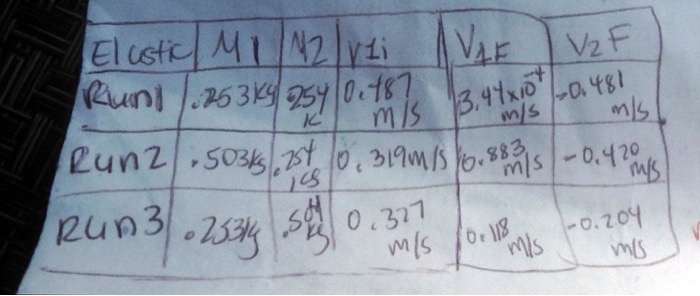 Elastic M1 M2 V1i V1F V2F
Run1 .253kg .254 K 0.487 m/s 3.44x10^-4 m/s -0.481 m/s
Run2 .503kg .254 kg 0.319m/s 0.883 m/s -0.420 m/s
Run3 .253kg .504 kg 0.327 m/s 0.118 m/s -0.204 m/s